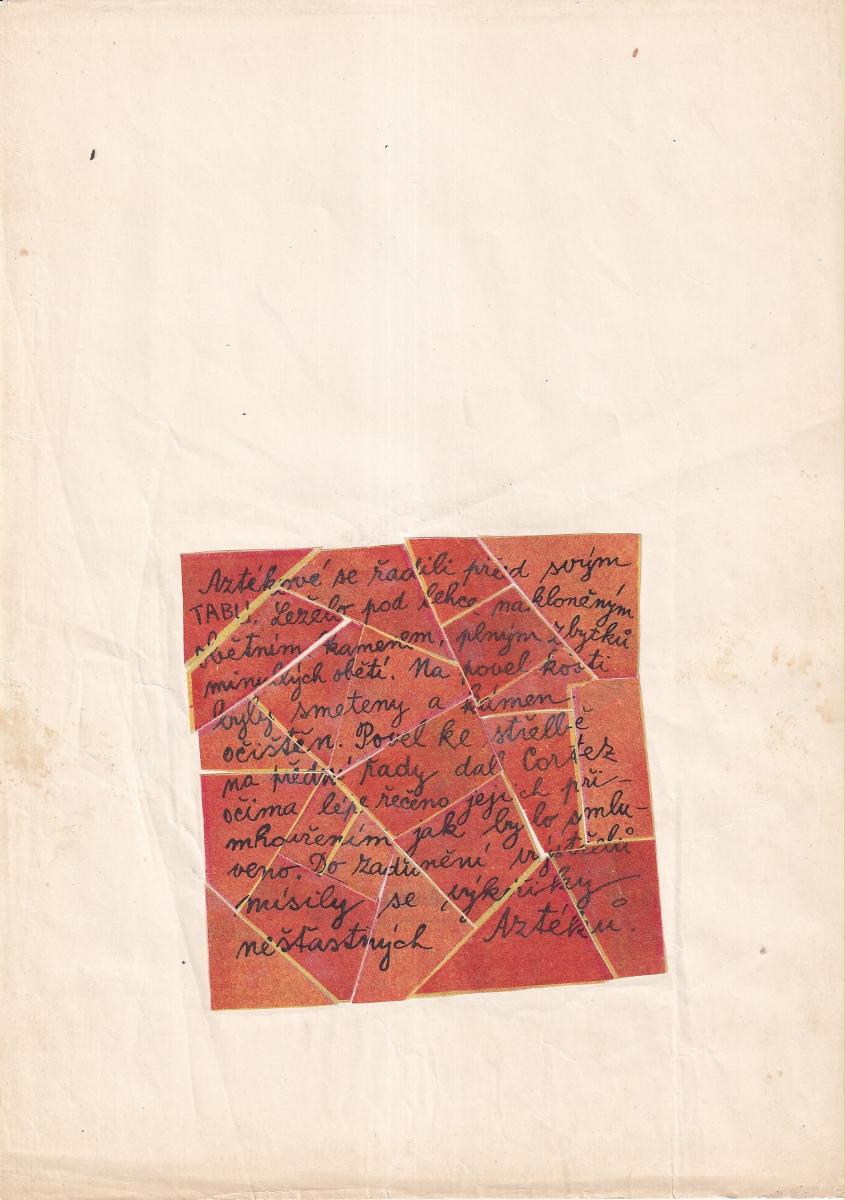 Aztékové se řadili před svým
TABU. Leželo pod lehce nakloněným
obětním kamenem, plným zbytků
minulých obětí. Na povel kosti
byly smeteny a kámen
očištěn. Povel ke střelbě
na přední řady dal Cortez
očima lépe řečeno jejich při-
mhouřením jak bylo smlu-
veno. Do zadunění výstřelů
mísily se výkřiky
nešťastných Aztéků.